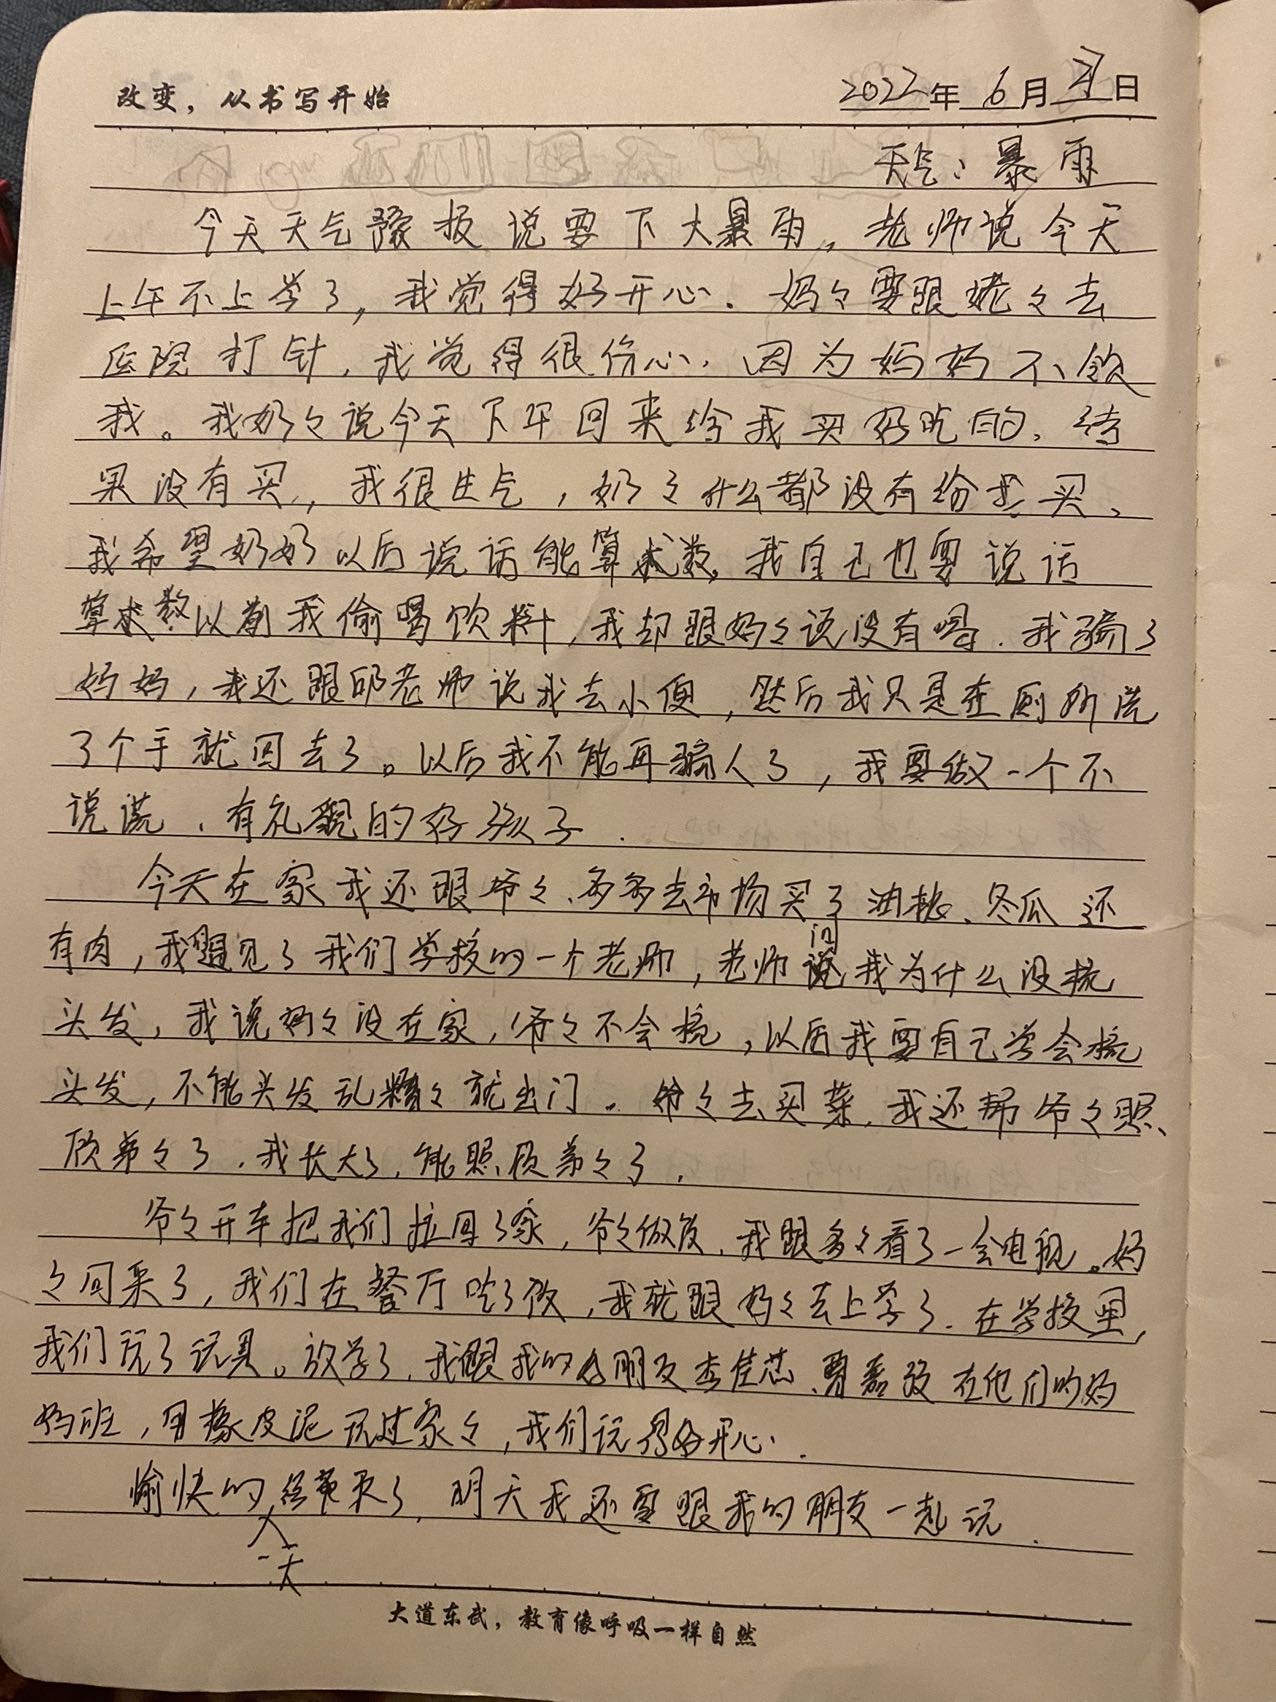 改变，从书写开始
2022年6月27日
天气：暴雨
今天天气豫报说要下大暴雨，老师说今天
上午不上学了，我觉得好开心。妈々要跟姥々去
医院打针，我觉得很伤心，因为妈妈不领
我。我奶々说今天下午回来给我买好吃的，结
果没有买，我很生气，奶々什么都没有给我买，
我希望奶奶以后说话能算数。我自己也要说话
算数以前我偷喝饮料，我却跟妈々说没有喝。我骗了
妈妈，我还跟邱老师说我去小便，然后我只是在厕所洗
了个手就回去了。以后我不能再骗人了，我要做一个不
说谎、有礼貌的好孩子。
今天在家我还跟爷々、多多去市场买了油桃、冬瓜还
有肉，我遇见了我们学校的一个老师，老师问我为什么没梳
头发，我说妈々没在家，爷々不会梳，以后我要自己学会梳
头发，不能头发乱糟々就出门。爷々去买菜，我还帮爷々照
顾弟々了，我长大了，能照顾弟々了。
爷々开车把我们拉回了家，爷々做饭，我跟多々看了一会电视。妈
々回来了，我们在餐厅吃了饭，我就跟妈々去上学了。在学校里，
我们玩了玩具。放学了，我跟我的朋友李佳芯、曹在他们的妈
妈班，用橡皮泥玩过家々，我们玩得好开心。
愉快的一天结束了，明天我还要跟我的朋友一起玩。
大道东武，教育像呼吸一样自然